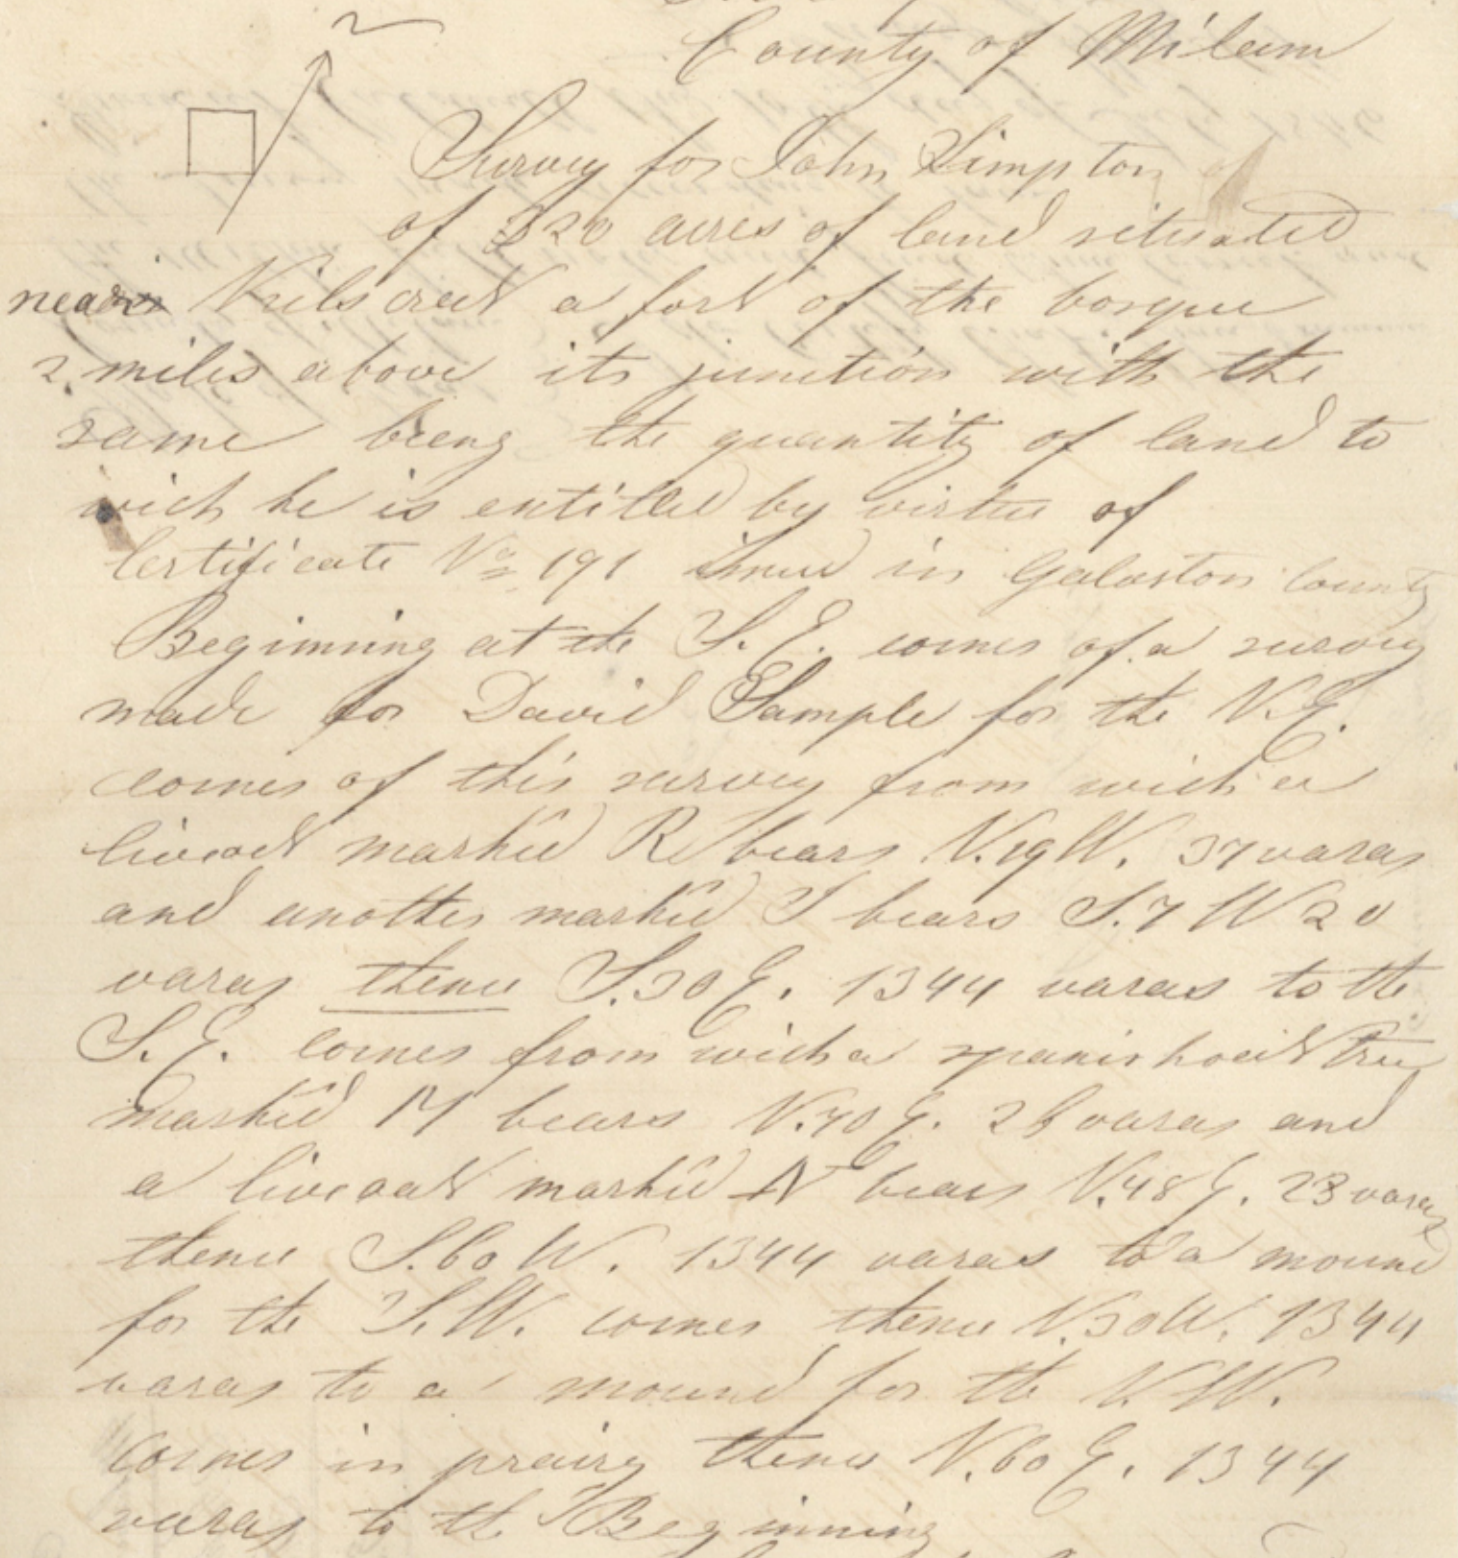 N
County of Milam
Survey for John Simpton
of 320 acres of land situated
near Neils creek a fork of the bosque
2 miles above its junction with the
same being the quantity of land to
wich he is entitled by virtue of
Certificate No 191 issued in Galaston County
Beginning at the S.E. corner of a survey
made for David Sample for the N.E.
corner of this survey from wich a
liveoak marked R bears N.19 W. 37 varas
and another marked I bears S.7 W 20
varas thence S.30 E. 1344 varas to the
S.E. corner from wich a spanishoak tree
marked M bears N.70 E. 26 varas and
a liveoak marked N bears N.48 E. 23 varas
thence S.60 W. 1344 varas to a mound
for the S.W. corner thence N.30 W. 1344
varas to a mound for the N.W.
corner in prairy thence N.60 E. 1344
varas to the Beginning